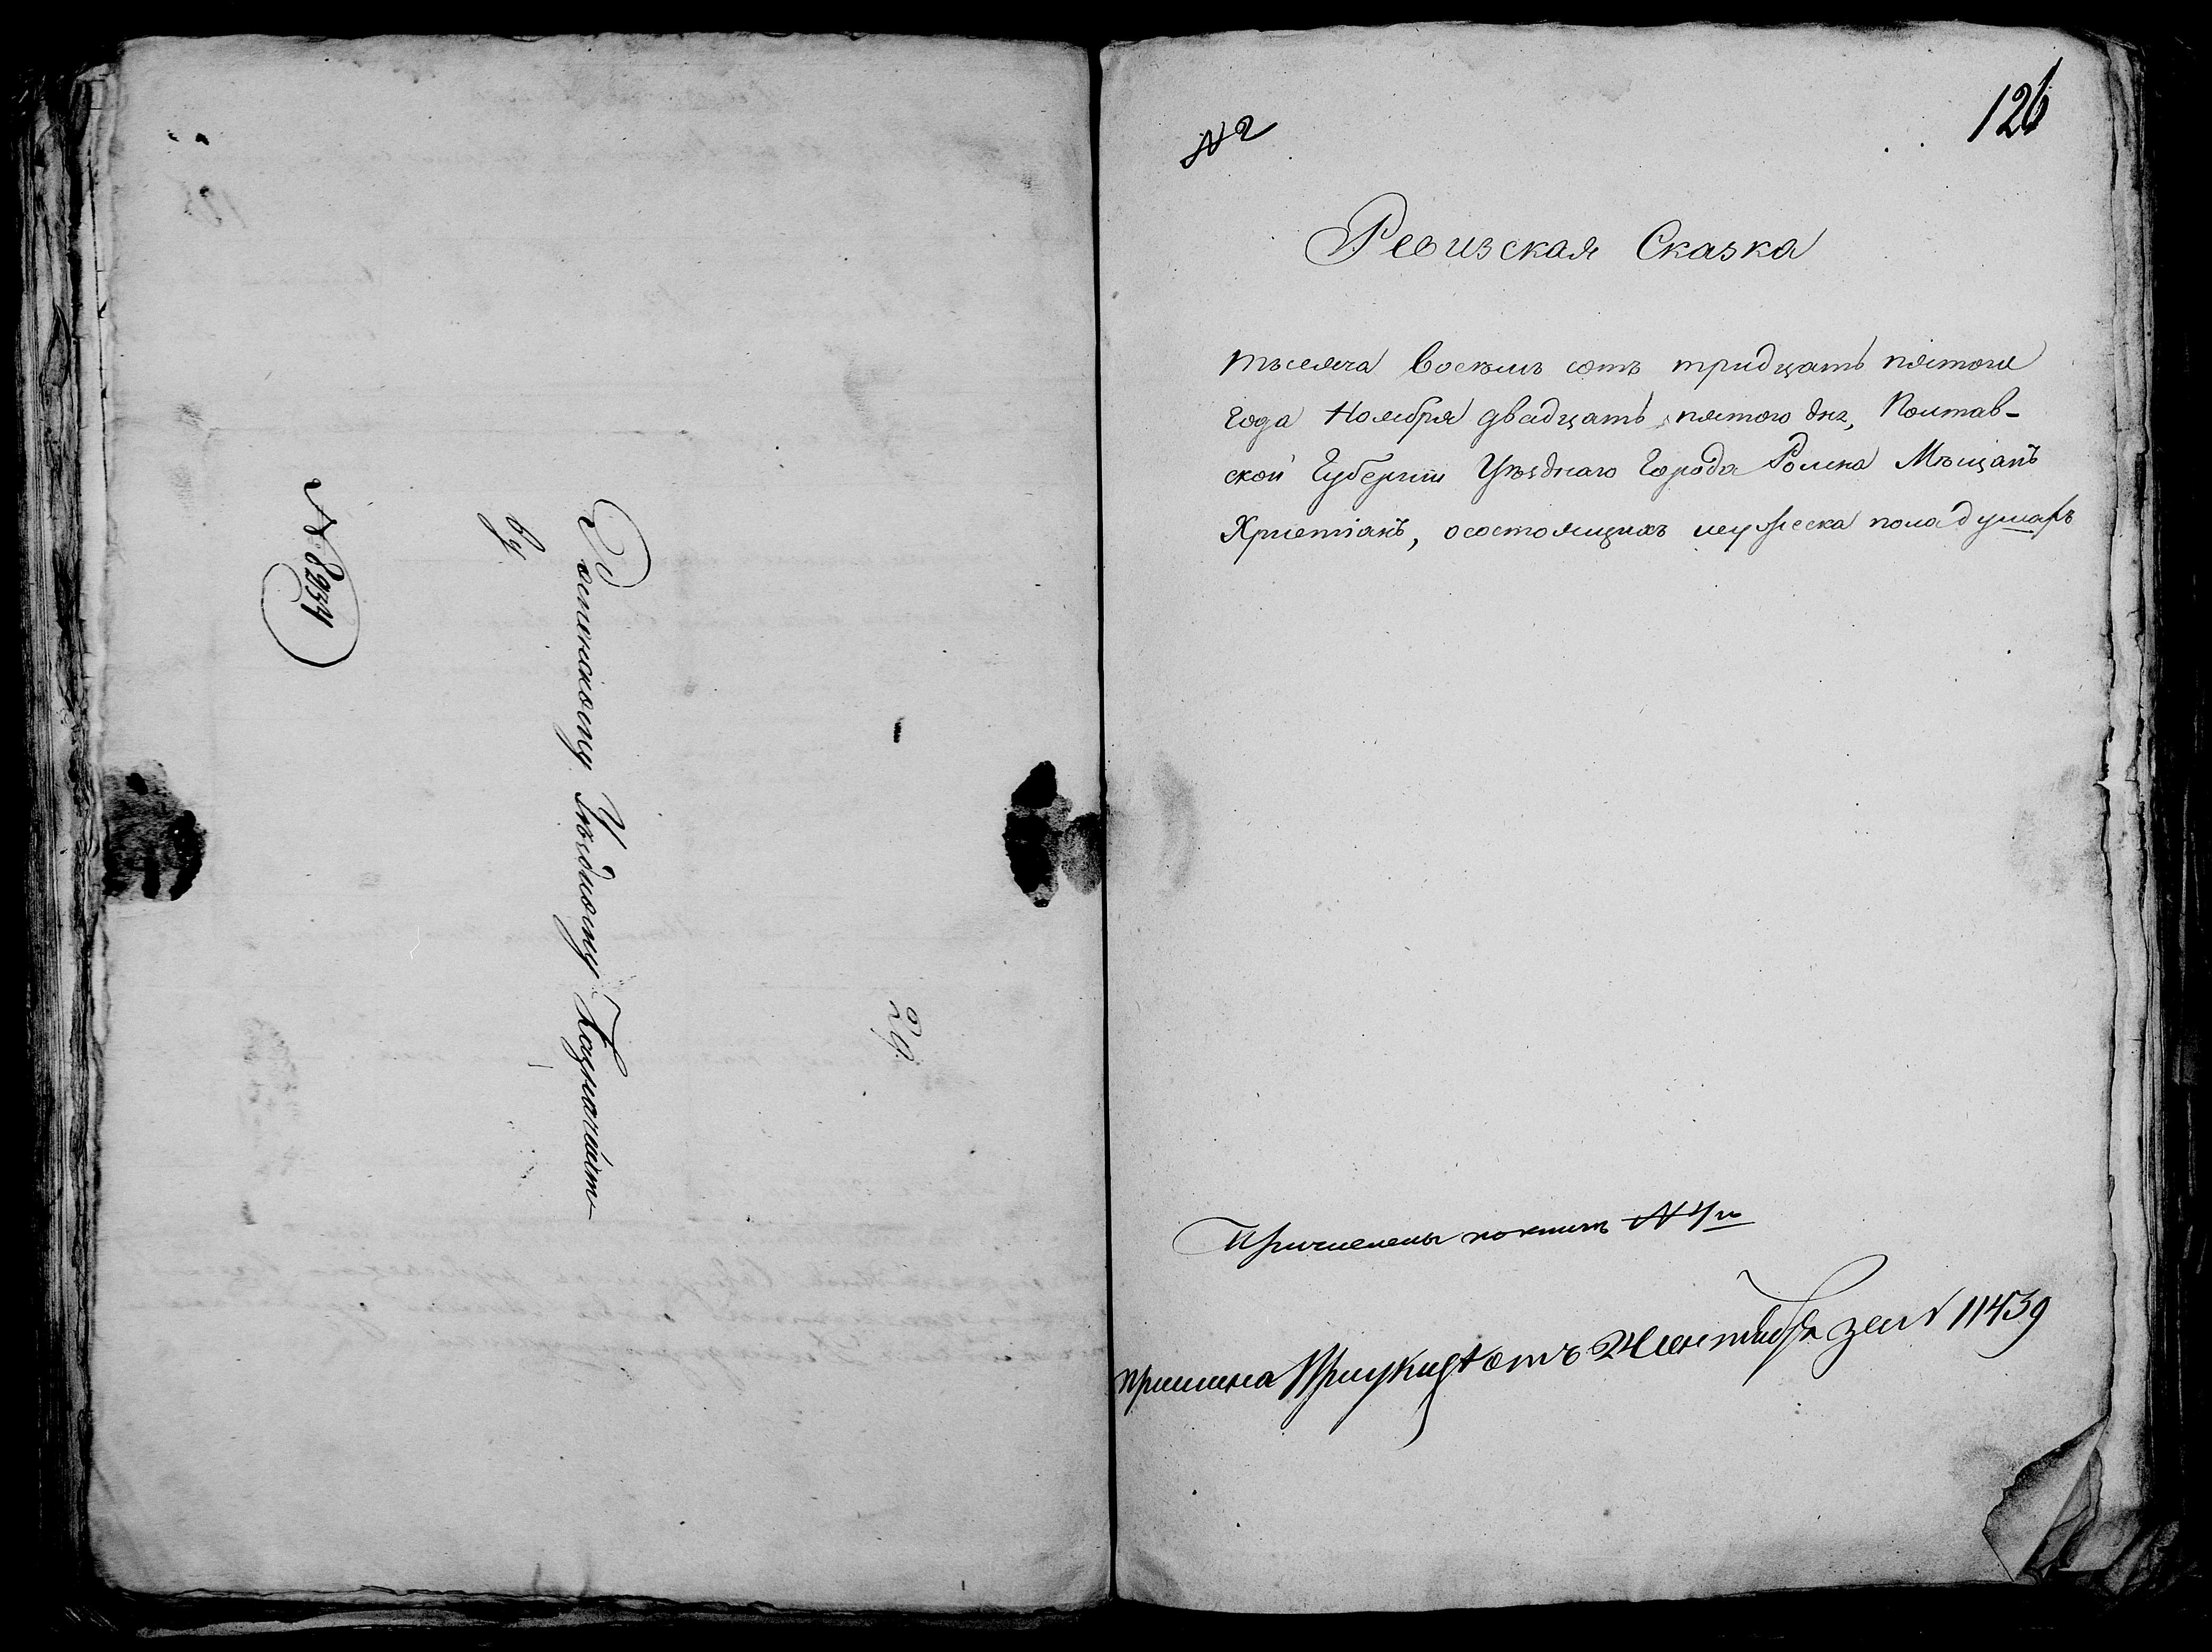 № 8934
Роменскому Уѣздному Казначейст
ву
29.
№ 2
126
Ревизская Сказка
тысяча восемь сотъ тридцать пятого
года Ноября двадцать пятого дня, Полтав-
ской Губерніи Уѣзднаго Города Ромна Мѣщанъ
Христіанъ, о состоящихъ мужеска пола душахъ
Причислены по книгѣ № 4й
отъ 24 сентября за № 11439